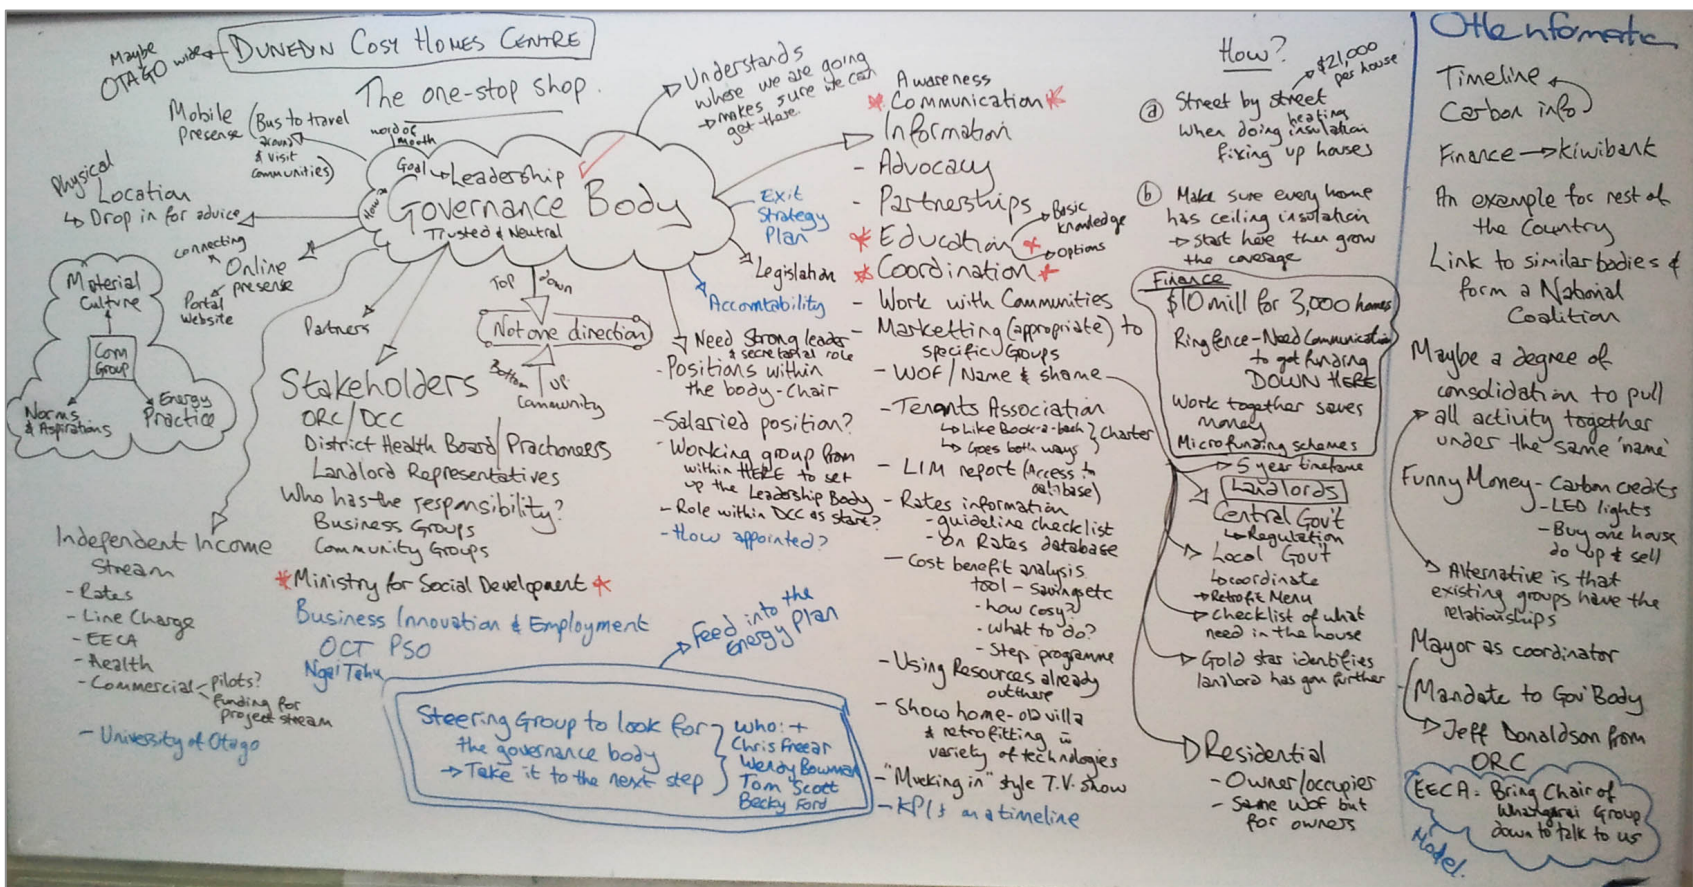 Maybe
OTAGO wide
DUNEDIN COSY HOMES CENTRE
The one-stop shop.
Mobile
Presense
(Bus to travel
around
& visit
communities)
word of
mouth
Physical
Location
↳ Drop in for advice
connecting
Online
presense
Portal
Website
Material
Culture
Com
Group
Norms
& Aspirations
Energy
Practice
Goal → Leadership
How
Governance Body
Trusted & Neutral
Understands
where we are going
→ makes sure we can
get there.
Exit
Strategy
Plan
Legislation
Accountability
Partners
Top down
Not one direction
Bottom up
Community
Stakeholders
ORC/DCC
District Health Board/Practioneers
Landlord Representatives
Who has the responsibility?
Business Groups
Community Groups
*Ministry for Social Development*
Business Innovation & Employment
OCT PSO
Ngai Tahu
Independent Income
Stream
- Rates
- Line Charge
- EECA
- Health
- Commercial - pilots?
funding for
project stream
- University of Otago
Need Strong leader
& secretarial role
- Positions within
the body - Chair
- Salaried position?
- Working group from
within HERE to set
up the Leadership Body
- Role within DCC as start?
- How appointed?
Feed into the
Energy Plan
Steering Group to look for
the governance body
→ Take it to the next step
who: +
Chris Freear
Wendy Bowman
Tom Scott
Becky Ford
Awareness
* Communication *
Information
- Advocacy
- Partnerships
* Education *
Basic
knowledge
Options
* Coordination *
- Work with Communities
- Marketting (appropriate) to
specific Groups
- WOF/Name & shame
- Tenants Association
↳ Like Book-a-bach
↳ Goes both ways
Charter
- LIM report (Access to
database)
- Rates information
- guideline checklist
- On Rates database
- Cost benefit analysis
tool - savings etc
- how cosy?
- what to do?
- Step programme
- Using Resources already
out there
- Show home - old villa
& retrofitting in
variety of technologies
- "Mucking in" style T.V. show
- KPI's on a timeline
How?
$21,000
per house
(a) Street by street
when doing heating
insulation
fixing up houses
(b) Make sure every home
has ceiling insulation
→ start here then grow
the coverage
Finance
$10 mill for 3,000 homes
Ringfence - Need Communication
to get funding
DOWN HERE
Work together saves
money
Microfunding schemes
5 year timeframe
Landlords
Central Gov't
↳ Regulation
Local Gov't
↳ coordinate
→ Retrofit Menu
Checklist of what
need in the house
Gold star identifies
landlord has gone further
Residential
- Owner/occupier
- Same WOF but
for owners
Othe Informatic
Timeline
Carbon info
Finance → Kiwibank
An example for rest of
the Country
Link to similar bodies &
form a National
Coalition
Maybe a degree of
consolidation to pull
all activity together
under the same 'name'
Funny Money - Carbon credits
- LED lights
- Buy one house
do up & sell
Alternative is that
existing groups have the
relationships
Mayor as coordinator
Mandate to Gov Body
Jeff Donaldson from
ORC
EECA: Bring Chair of
Whangarai Group
down to talk to us
Model.